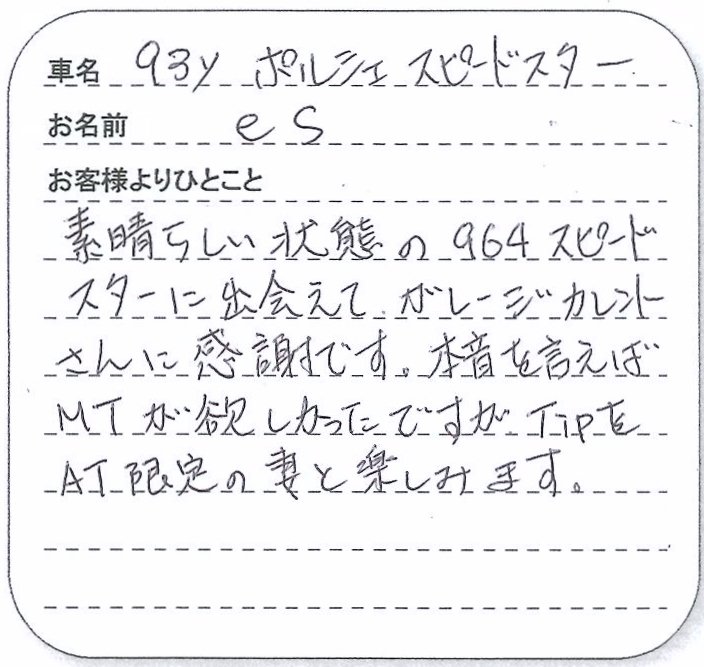 車名 93y ポルシェ スピードスター
お名前 es
お客様よりひとこと
素晴らしい状態の964スピード
スターに出会えて、ガレージカレント
さんに感謝です。本音を言えば
MTが欲しかったですが、Tipを
AT限定の妻と楽しみます。